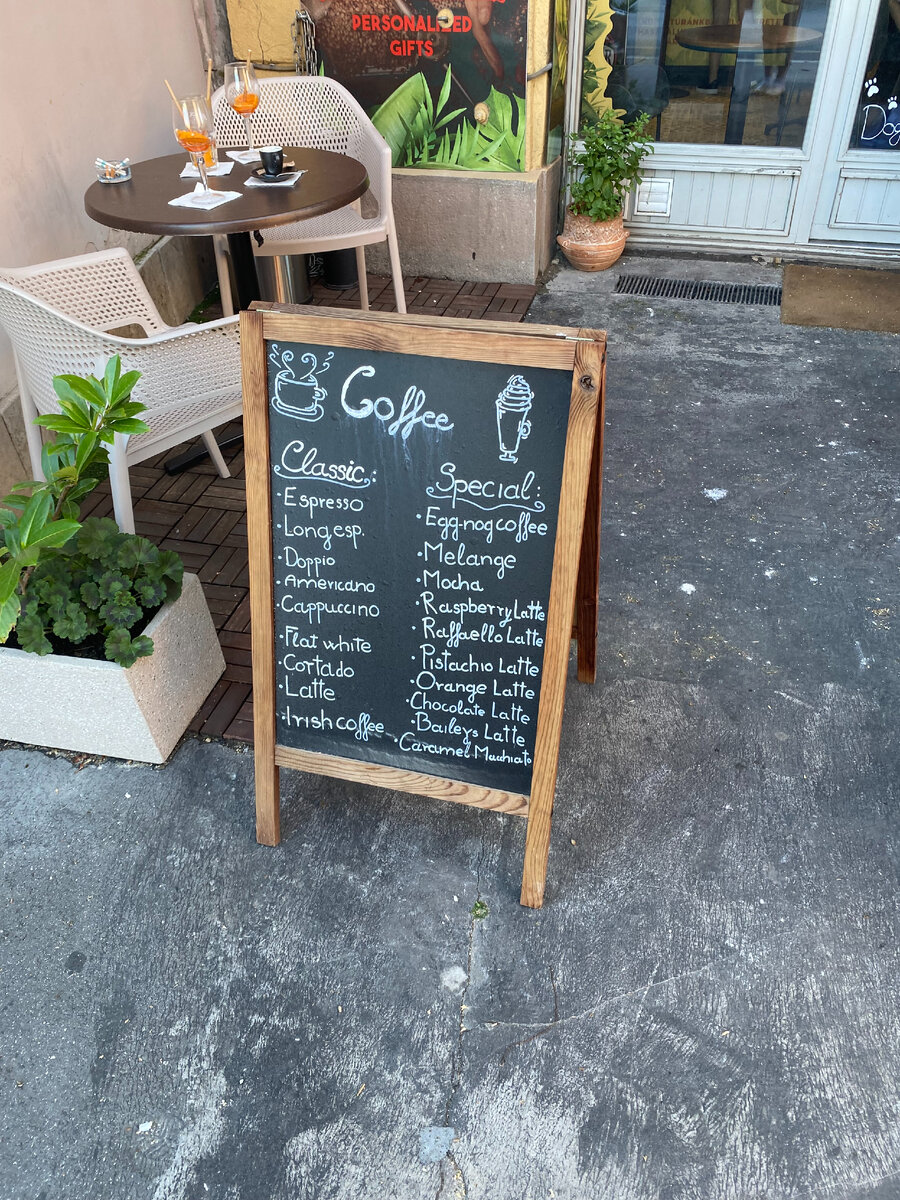 PERSONALIZED
GIFTS
Dog
Coffee
Classic:
• Espresso
• Long esp.
• Doppio
• Americano
• Cappuccino
• Flat white
• Cortado
• Latte
• Irish coffee
Special:
• Egg-nog coffee
• Melange
• Mocha
• Raspberry Latte
• Raffaello Latte
• Pistachio Latte
• Orange Latte
• Chocolate Latte
• Baileys Latte
• Caramel Macchiato